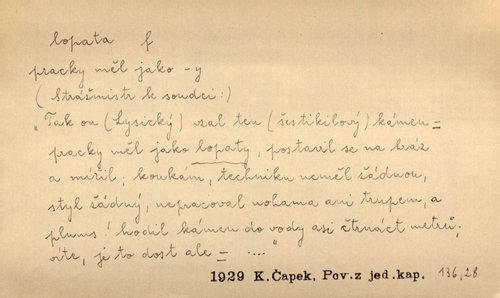 lopata f
pracky měl jako -y
(Strážmistr k soudci:)
"Tak on (Lysický) vzal ten (šestikilový) kámen =
pracky měl jako lopaty, postavil se na hráz
a mířil; koukám, techniku neměl žádnou,
styl žádný, nepracoval nohama ani trupem, a
plums! hodil kámen do vody asi čtrnáct metrů;
víte, je to dost ale = ...."
1929 K.Čapek, Pov.z jed.kap. 136,28